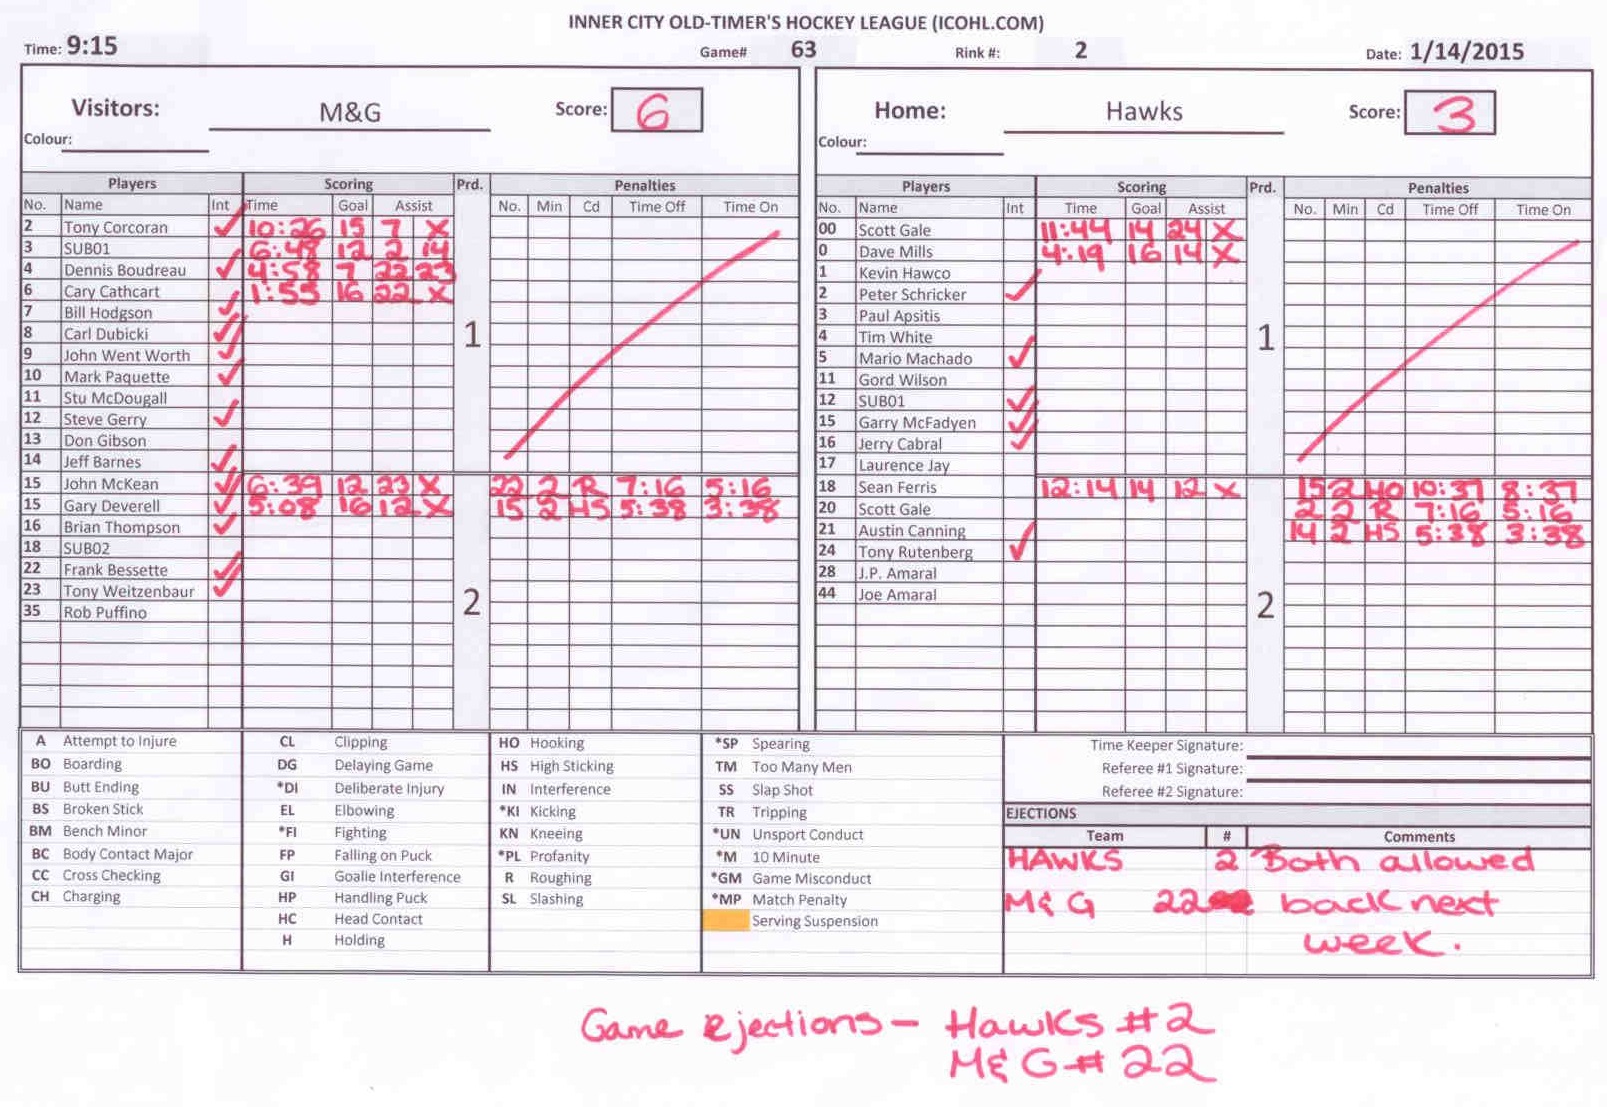 INNER CITY OLD-TIMER'S HOCKEY LEAGUE (ICOHL.COM)
Time: 9:15 Game# 63 Rink #: 2 Date: 1/14/2015
Visitors: M&G Score: 6
Colour:
Players Scoring Prd. Penalties
No. Name Int Time Goal Assist No. Min Cd Time Off Time On
2 Tony Corcoran ✓ 10:26 15 7 X
3 SUB01 6:48 12 2 14
4 Dennis Boudreau ✓ 4:58 7 22 23
6 Cary Cathcart 1:55 16 22 X
7 Bill Hodgson ✓
8 Carl Dubicki ✓
9 John Went Worth ✓
10 Mark Paquette ✓
11 Stu McDougall
12 Steve Gerry ✓
13 Don Gibson
14 Jeff Barnes ✓
1
15 John McKean ✓ 6:39 12 23 X 22 2 R 7:16 5:16
15 Gary Deverell ✓ 5:08 16 12 X 15 2 HS 5:38 3:38
16 Brian Thompson ✓
18 SUB02
22 Frank Bessette ✓
23 Tony Weitzenbaur ✓
35 Rob Puffino
2
Home: Hawks Score: 3
Colour:
Players Scoring Prd. Penalties
No. Name Int Time Goal Assist No. Min Cd Time Off Time On
00 Scott Gale 11:44 14 24 X
0 Dave Mills 4:19 16 14 X
1 Kevin Hawco
2 Peter Schricker ✓
3 Paul Apsitis
4 Tim White
5 Mario Machado ✓
11 Gord Wilson
12 SUB01 ✓
15 Garry McFadyen ✓
16 Jerry Cabral ✓
17 Laurence Jay
1
18 Sean Ferris 12:14 14 12 X 15 2 HO 10:37 8:37
20 Scott Gale 2 2 R 7:16 5:16
21 Austin Canning 14 2 HS 5:38 3:38
24 Tony Rutenberg ✓
28 J.P. Amaral
44 Joe Amaral
2
A Attempt to Injure
BO Boarding
BU Butt Ending
BS Broken Stick
BM Bench Minor
BC Body Contact Major
CC Cross Checking
CH Charging
CL Clipping
DG Delaying Game
*DI Deliberate Injury
EL Elbowing
*FI Fighting
FP Falling on Puck
GI Goalie Interference
HP Handling Puck
HC Head Contact
H Holding
HO Hooking
HS High Sticking
IN Interference
*KI Kicking
KN Kneeing
*PL Profanity
R Roughing
SL Slashing
*SP Spearing
TM Too Many Men
SS Slap Shot
TR Tripping
*UN Unsport Conduct
*M 10 Minute
*GM Game Misconduct
*MP Match Penalty
Serving Suspension
Time Keeper Signature:
Referee #1 Signature:
Referee #2 Signature:
EJECTIONS
Team # Comments
HAWKS 2 Both allowed
M&G 22 back next
week.
Game ejections - Hawks #2
M&G #22